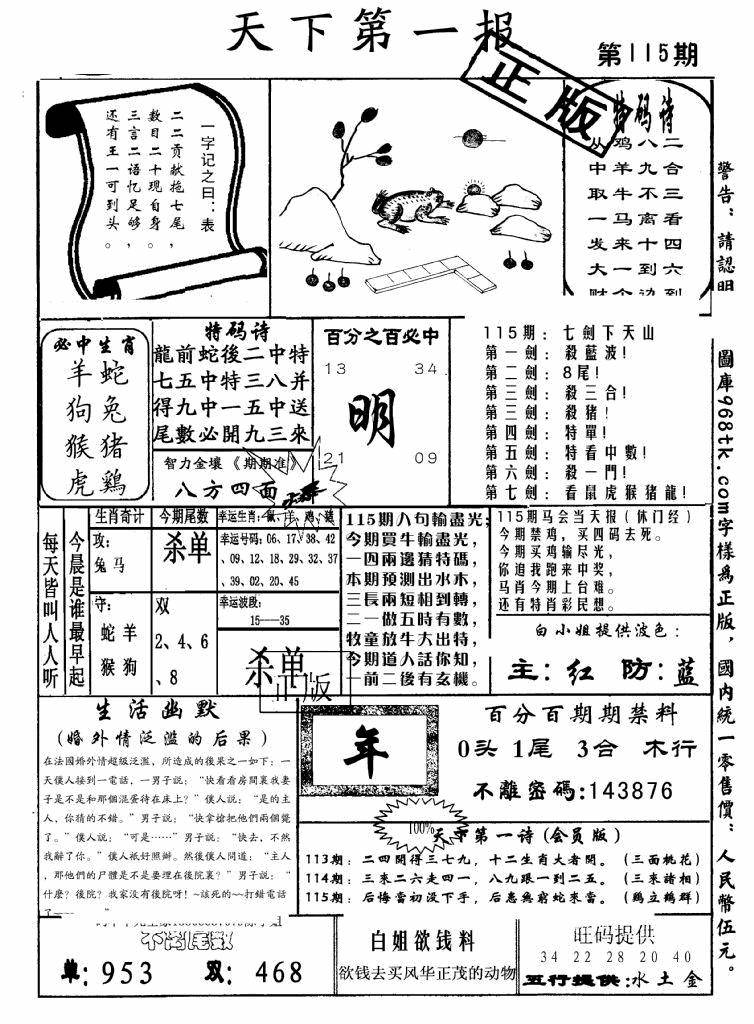 天下第一报
第115期
正版
一字记之曰：表
二二贡献拖七尾，
数目二十现自身，
三言二语忆足够，
还有王一可到头。
特码诗
从鸡八二
中羊九合
取牛不三
一马离看
发来十四
大一到六
警告：請認明圖庫968tk.com字様為正版，國内統一零售價：人民幣伍元。
必中生肖
羊蛇
狗兔
猴猪
虎鷄
特码诗
龍前蛇後二中特
七五中特三八并
得九中一五中送
尾數必開九三來
智力金壤《期期准》
八方四面
百分之百必中
13 34
明
21 09
115期：七劍下天山
第一劍：殺藍波！
第二劍：8尾！
第三劍：殺三合！
第三劍：殺猪！
第四劍：特單！
第五劍：特看中數！
第六劍：殺一門！
第七劍：看鼠虎猴猪龍！
每天皆叫人人听
今晨是谁最早起
生肖奇计
攻：
兔马
守：
蛇羊
猴狗
今期尾数
杀单
双
2、4、6
、8
幸运生肖：
幸运号码：06、17、38、42
、09、12、18、29、32、37
、39、02、20、45
幸运波段：
15——35
杀单
正版
115期八句輸盡光；
今期買牛輸盡光，
一四兩邊猜特碼，
本期預測出水木，
三長兩短相到轉，
二一做五時有數，
牧童放牛大出特，
今期道人話你知，
一前二後有玄機。
115期马会当天报（休门经）
今期禁鸡，买四码去死。
今期买鸡输尽光，
你追我跑来中奖，
马肖今期上台难。
还有特肖彩民想。
白小姐提供波色：
主：红 防：蓝
生活幽默
（婚外情泛滥的后果）
在法國婚外情超級泛滥，所造成的後果之一如下：一
天僕人接到一電話，一男子説：“快看看房間裏我妻
子是不是和那個混蛋待在床上？”僕人説：“是的主
人，你猜的不錯。”男子説：“快拿槍把他們兩個斃
了。”僕人説：“可是……”男子説：“快去，不然
我辭了你。”僕人衹好照辦。然後僕人問道：“主人
，那他們的尸體是不是要埋在後院裏？”男子説：“
什麽？後院？我家没有後院呀！~該死的~~打錯電話
年
百分百期期禁料
0头 1尾 3合 木行
不離密碼：143876
100%
天下第一诗（会员版）
113期：二四開得三七九，十二生肖大者開。（三面桃花）
114期：三來二六走四一，八九跟一到二五。（三來諸相）
115期：后悔當初没下手，后患無窮蛇來當。（鷄立鶴群）
单：953 双：468
白姐欲钱料
欲钱去买风华正茂的动物
旺码提供
34 22 28 20 40
五行提供：水土金